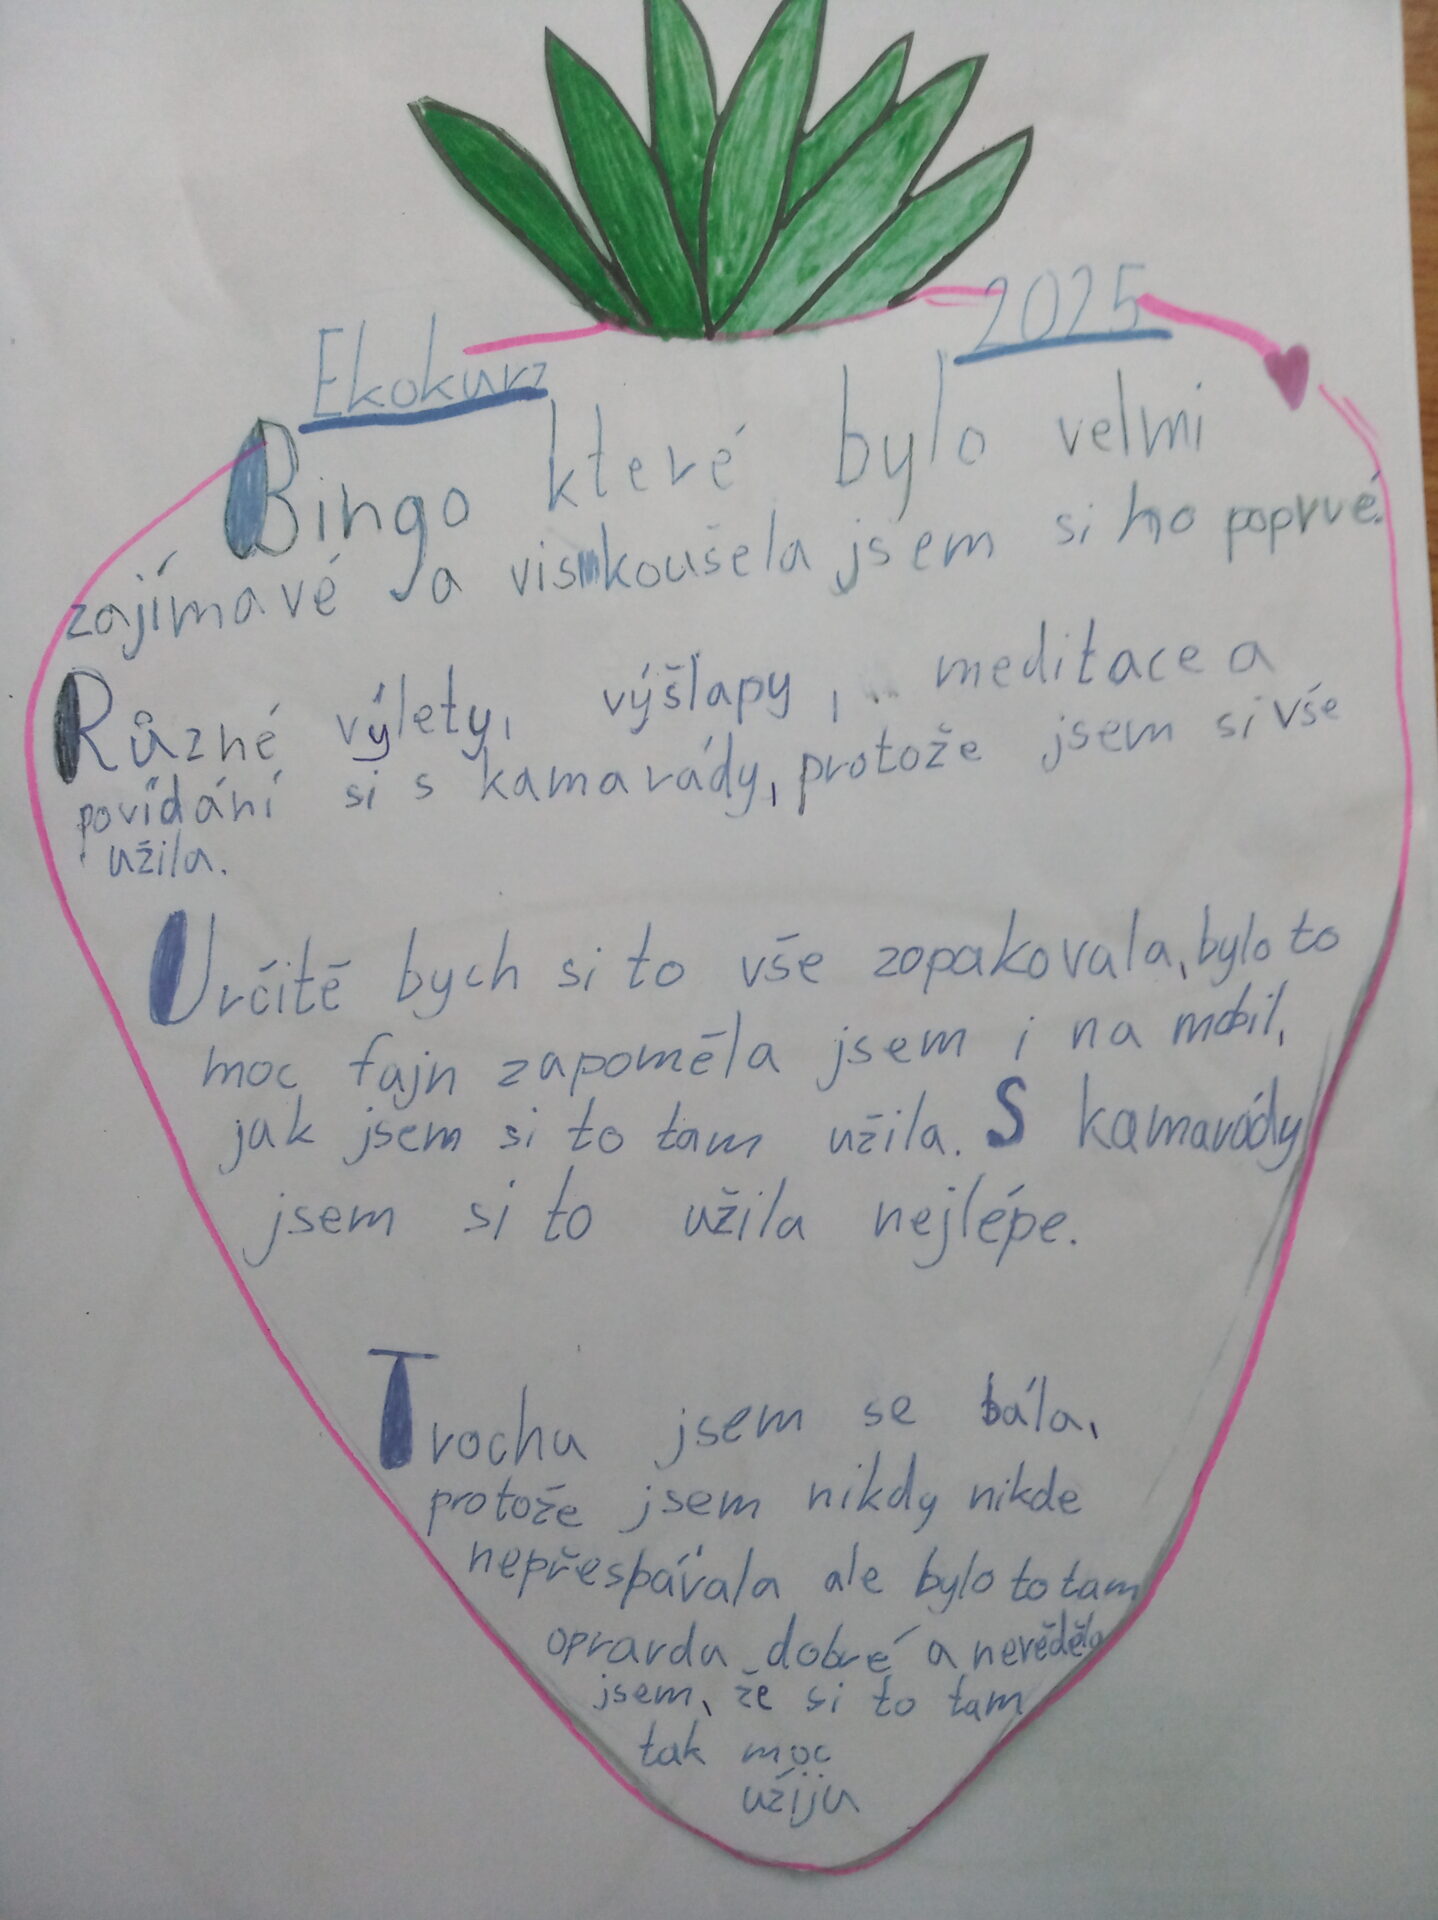 Ekokurz 2025
Bingo které bylo velmi
zajímavé a viskoušela jsem si ho poprvé.
Různé výlety, výšlapy, meditace a
povídání si s kamarády, protože jsem si vše
užila.
Určitě bych si to vše zopakovala, bylo to
moc fajn zapoměla jsem i na mobil,
jak jsem si to tam užila. S kamarády
jsem si to užila nejlépe.
Trochu jsem se bála,
protože jsem nikdy nikde
nepřespávala ale bylo to tam
opravdu dobré a nevěděla
jsem, že si to tam
tak moc
užiju